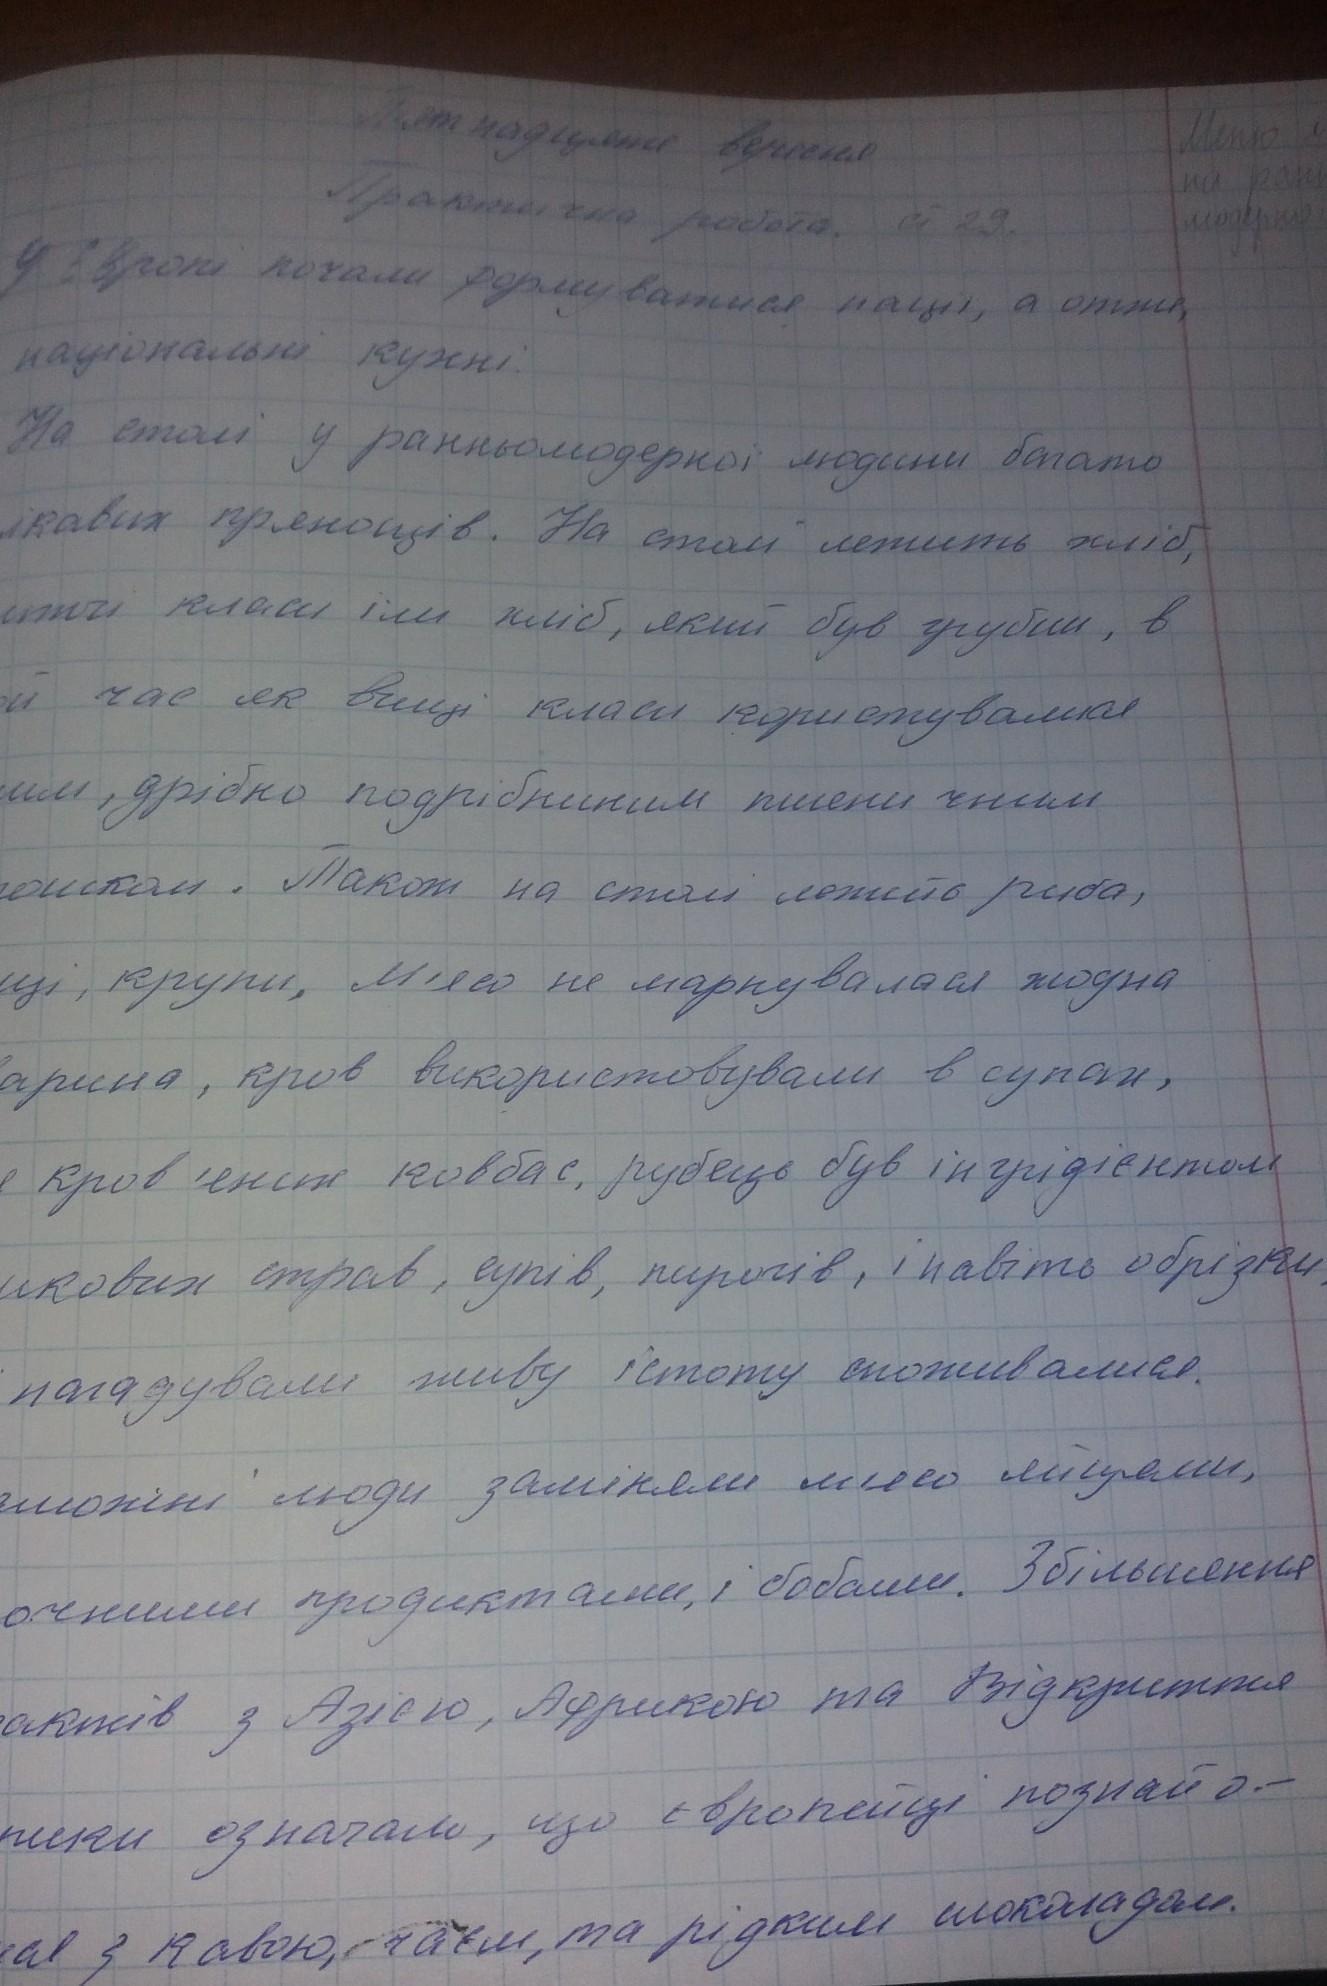 П'ятнадцяте вересня
Практична робота. ст 29.
Меню
на
У Європі почали формуватися нації, а отже,
національні кухні.
На столі у ранньомодерної людини багато
ікавих прянощів. На столі лежить хліб,
класи їли хліб, який був грубим, в
ой час як вищі класи користувалися
им, дрібно подрібниним пшеничним
рошком. Також на столі лежить риба,
ці, крупи, М'ясо не марнувалася жодна
варина, кров використовували в супах,
кров'яних ковбас, рубець був інгрідієнтом
стков­их страв, супів, пирогів, і навіть обрізки,
нагадували живу їстоту споживалися.
аможні люди заміняли м'ясо яйцями,
очними продуктами, і бобами. Збільшення
актів з Азією, Африкою та Відкриття
рики означало, що європейці познайо-
ися з кавою, чаєм, та рідким шоколадом.